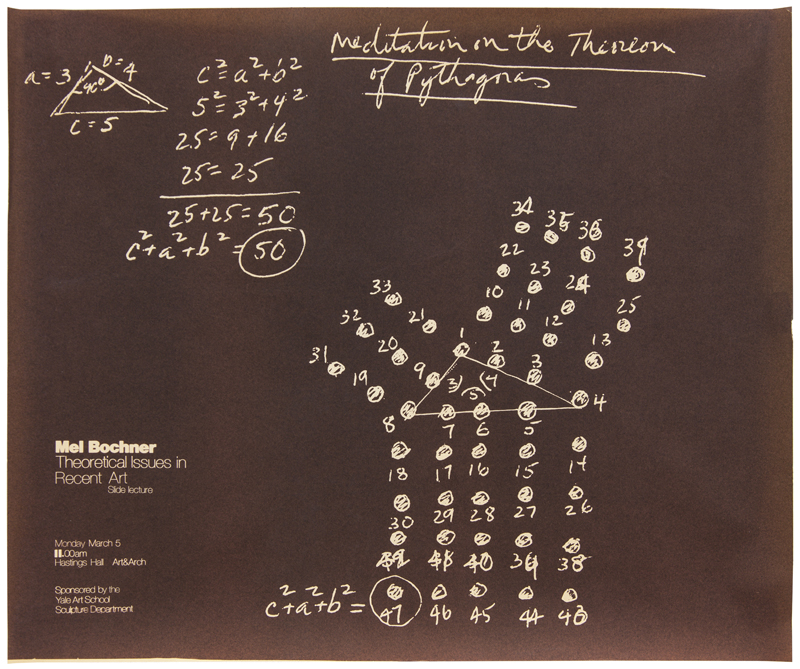 Meditation on the Theorem
of Pythagoras
a = 3
b = 4
90°
c = 5
c² = a² + b²
5² = 3² + 4²
25 = 9 + 16
25 = 25
25 + 25 = 50
c² + a² + b² = 50
34 35 36
22 23 24 25
33 10 11 12 13
32 21 1 2 3
31 20 9 (3) (4)
19 (5) 4
8 7 6 5
18 17 16 15 14
30 29 28 27 26
41 40 38
c² + a² + b² = 47 46 45 44 43
Mel Bochner
Theoretical Issues in
Recent Art
Slide lecture
Monday March 5
11.00am
Hastings Hall Art&Arch
Sponsored by the
Yale Art School
Sculpture Department